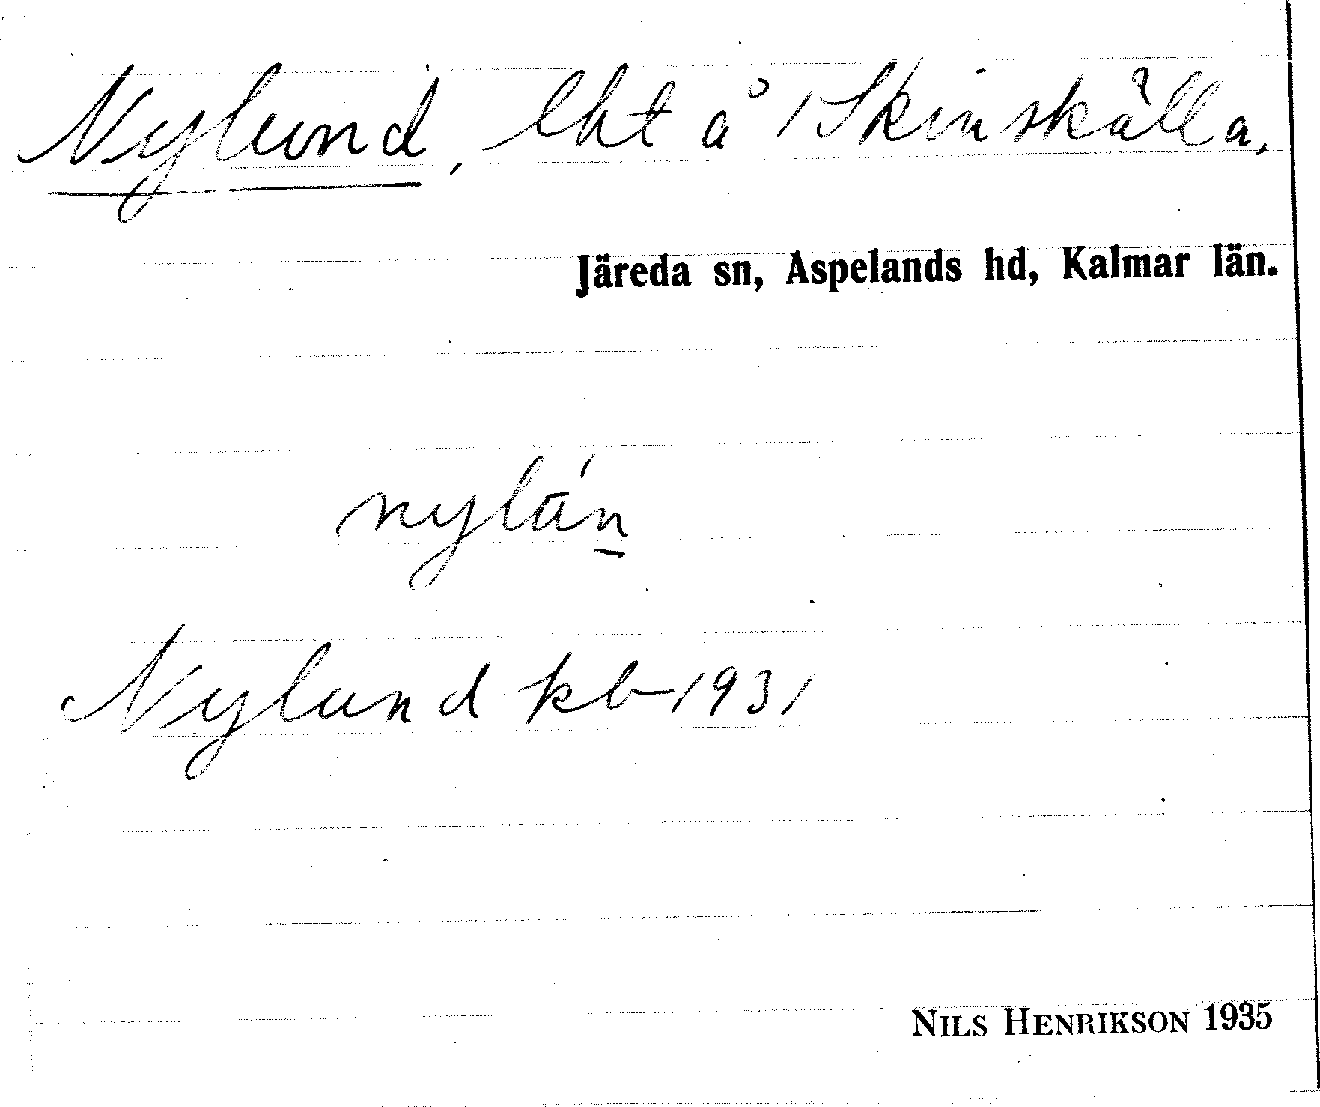 Nylund, lht å Skinskälla,
Järeda sn, Aspelands hd, Kalmar län.
nylán
Nylund kb 1931
NILS HENRIKSON 1935